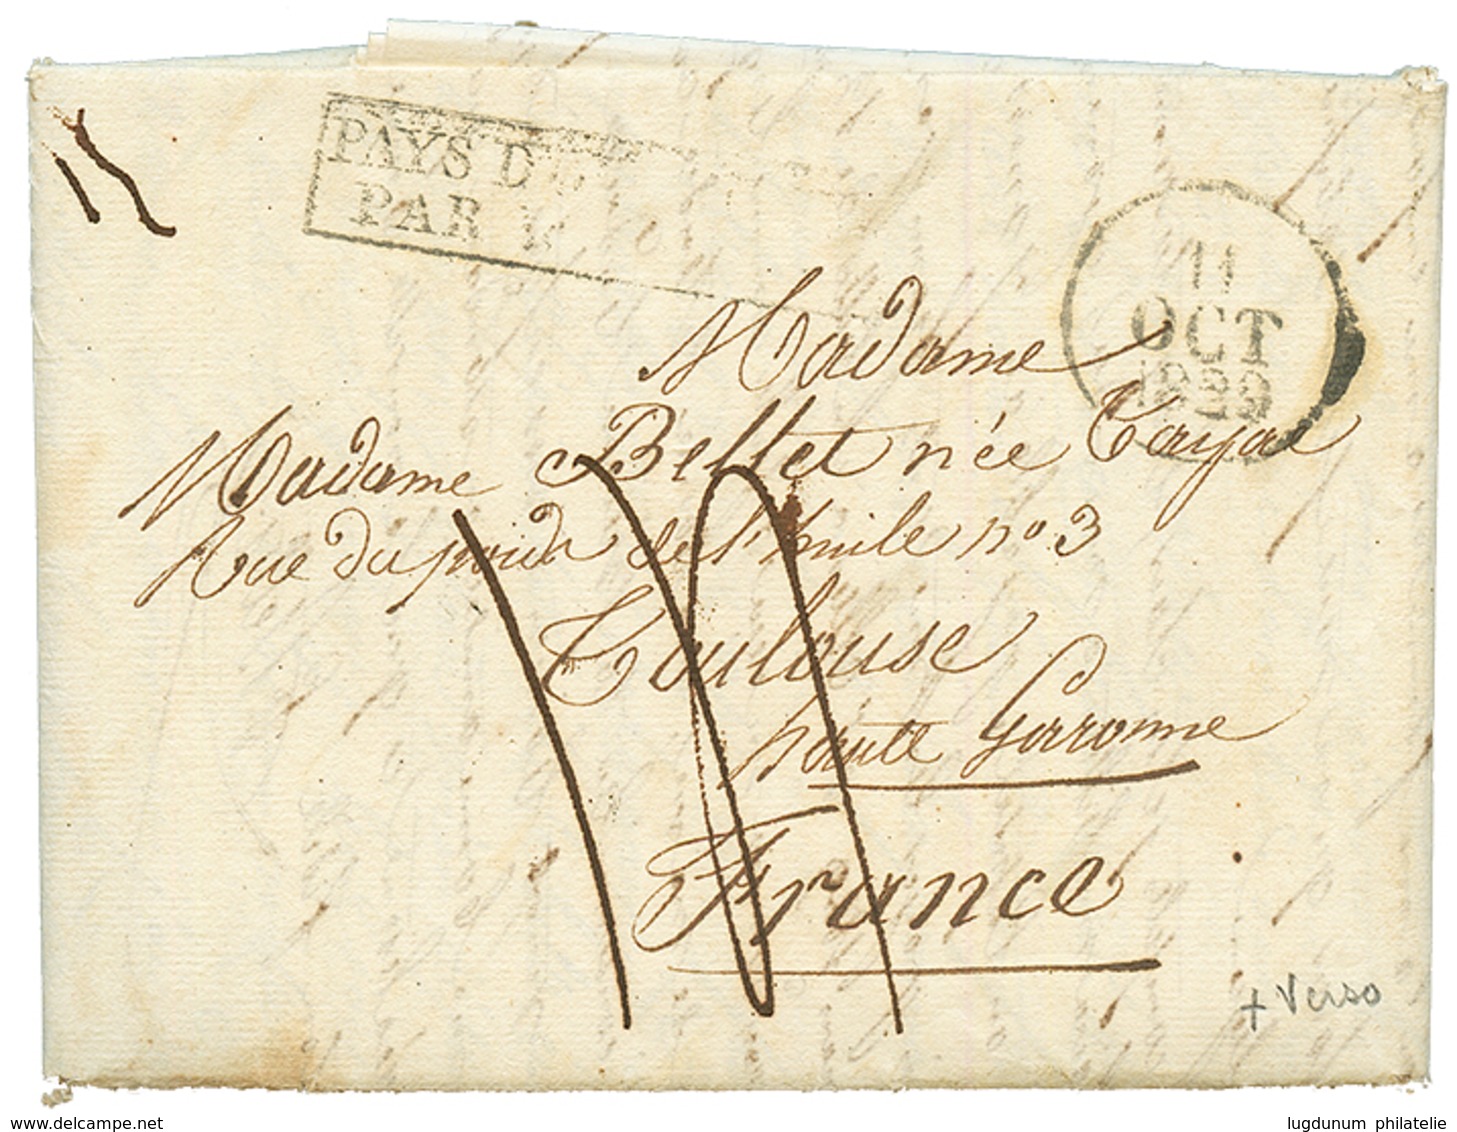 PAYS D
PAR
11
OCT
1829
Madame
Madame Bellet née Cayre
Rue du poids de l'huile no 3
Toulouse
haute Garonne
France
+ Verso
www.delcampe.net
lugdunum philatelie